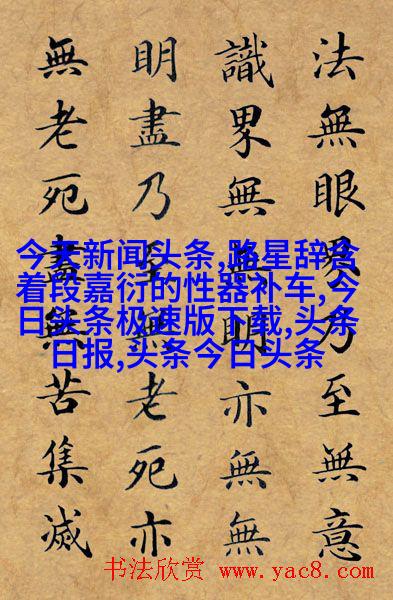 法無眼界乃至無意
識界無無明亦無無
明盡乃至無老死亦
無老死盡無苦集滅
今天新闻头条,路星辞含
着段嘉衍的性器补车,今
日头条极速版下载,头条
日报,头条今日头条
书法欣赏 www.yac8.com